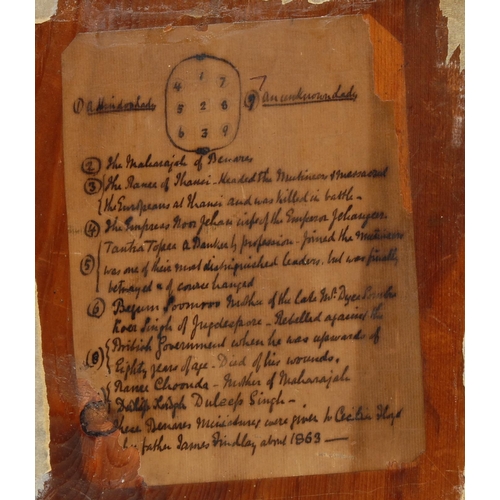 4 1 7
① A Hindoo Lady 5 2 8 ⑨ An unknown Lady
6 3 9
② The Maharajah of Benares
③ The Ranee of Jhansi - Headed the Mutineers & massacred
the Europeans at Jhansi and was killed in battle -
④ The Empress Noor Jehan wife of the Emperor Jehangeer
Tantia Topee a Banker by profession - joined the Mutineers
⑤ was one of their most distinguished leaders. but was finally
betrayed & of course hanged
⑥ Begum Soomroo Mother of the late Mr. Dyce Sombre
Koer Singh of Jugdespore - Rebelled against the
British Government when he was upwards of
⑧ Eighty years of age - Died of his wounds.
Ranee Choonda - Mother of Maharajah
Dulip Singh Duleep Singh -
These Benares Miniatures were given to Cecilia
by father James Findlay about 1863 —